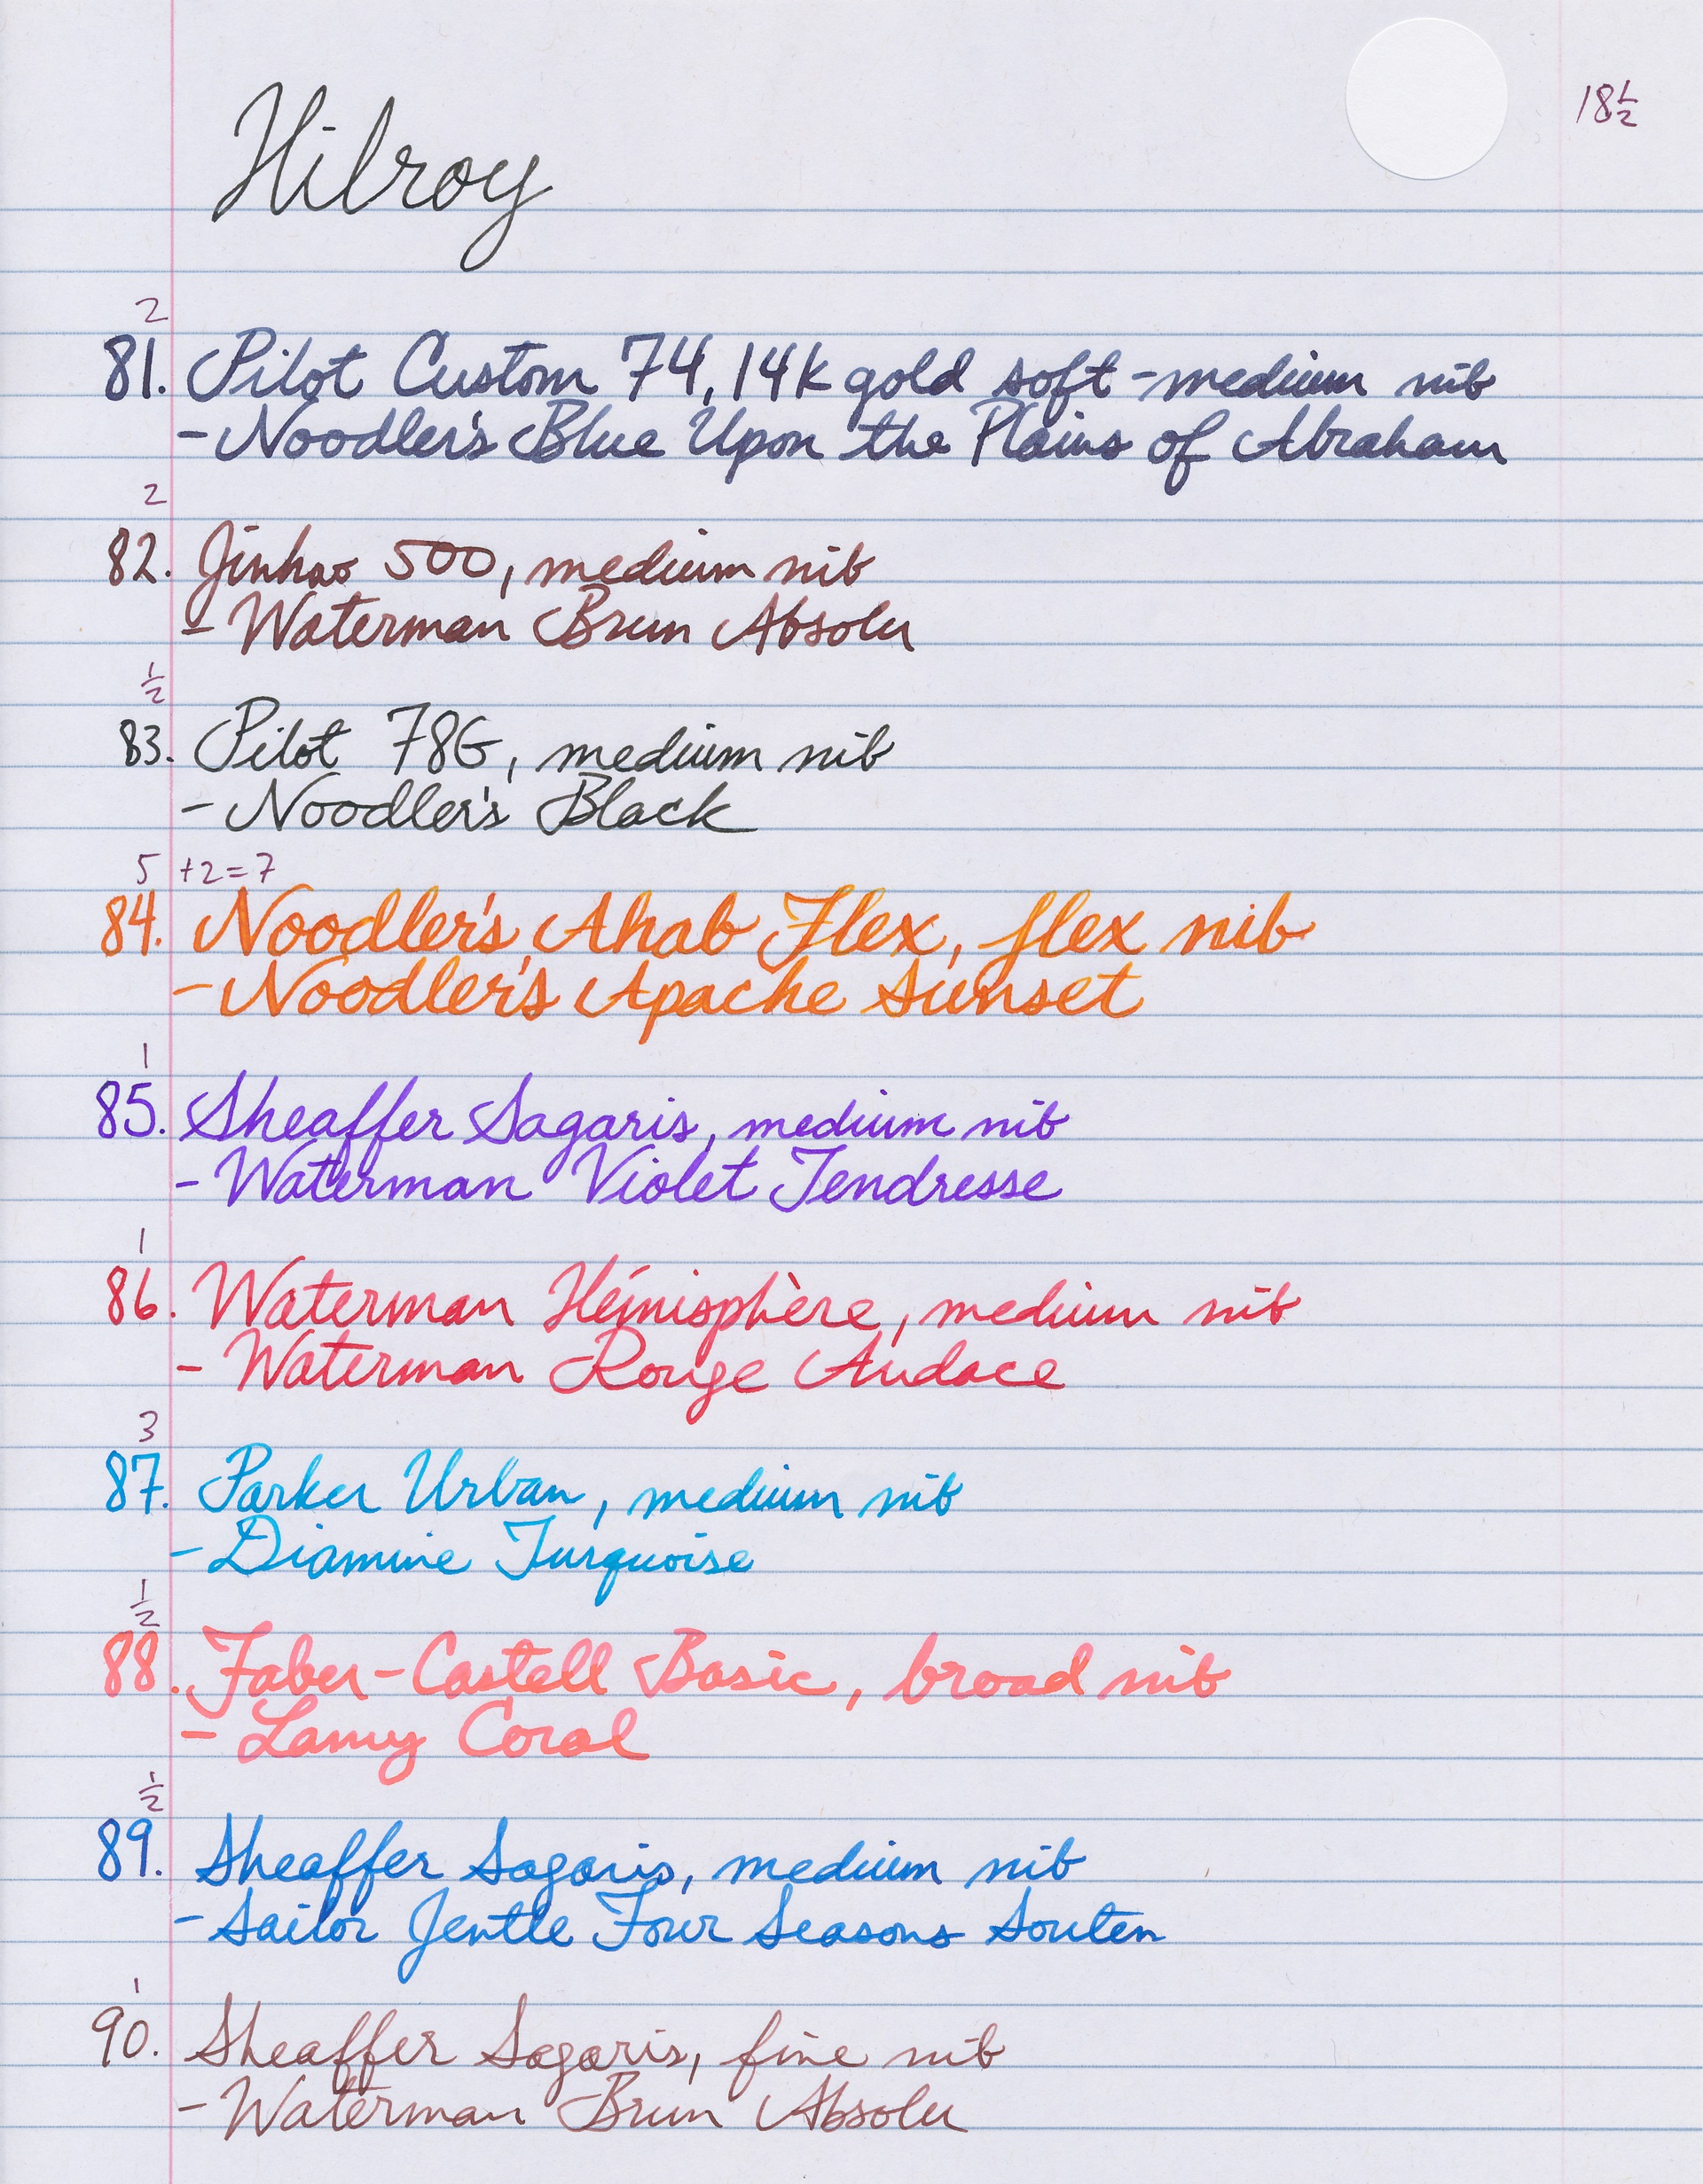 18½
Hilroy
2
81. Pilot Custom 74, 14k gold soft-medium nib
- Noodler's Blue Upon the Plains of Abraham
2
82. Jinhao 500, medium nib
- Waterman Brun Absolu
½
83. Pilot 78G, medium nib
- Noodler's Black
5 +2=7
84. Noodler's Ahab Flex, flex nib
- Noodler's Apache Sunset
1
85. Sheaffer Sagaris, medium nib
- Waterman Violet Tendresse
1
86. Waterman Hémisphère, medium nib
- Waterman Rouge Audace
3
87. Parker Urban, medium nib
- Diamine Turquoise
½
88. Faber-Castell Basic, broad nib
- Lamy Coral
½
89. Sheaffer Sagaris, medium nib
- Sailor Jentle Four Seasons Souten
1
90. Sheaffer Sagaris, fine nib
- Waterman Brun Absolu